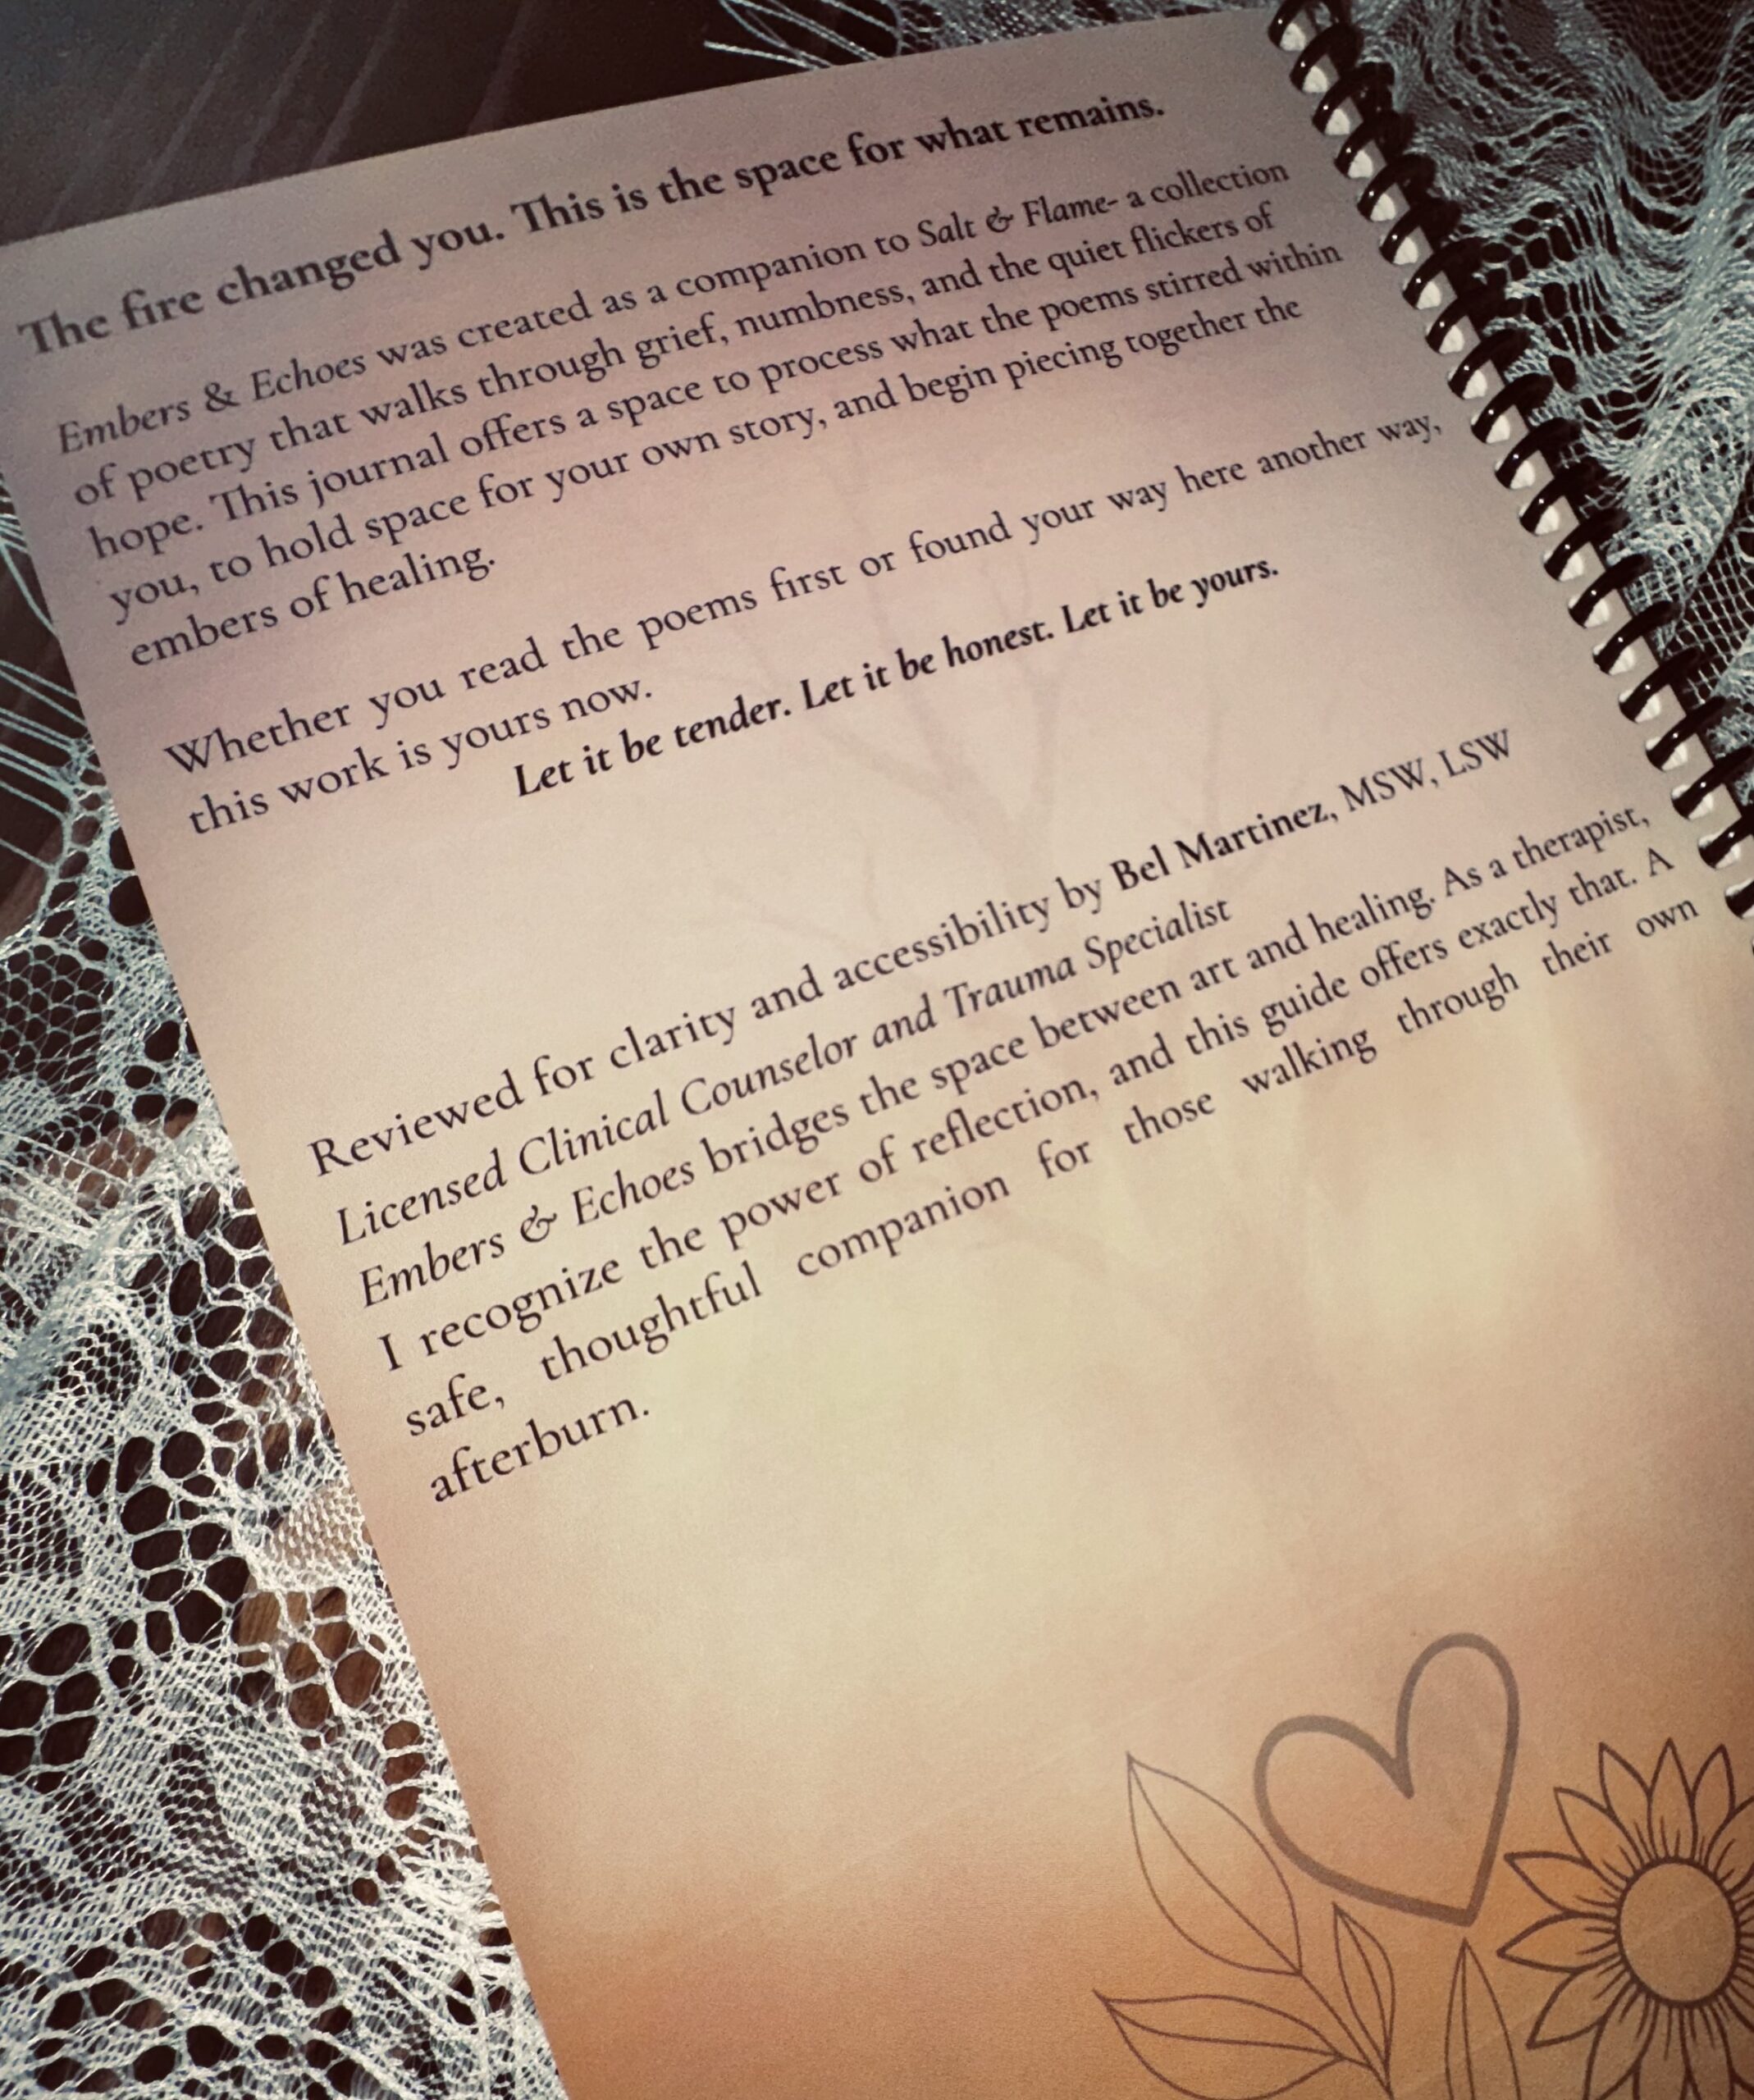 The fire changed you. This is the space for what remains.
Embers & Echoes was created as a companion to Salt & Flame- a collection
of poetry that walks through grief, numbness, and the quiet flickers of
hope. This journal offers a space to process what the poems stirred within
you, to hold space for your own story, and begin piecing together the
embers of healing.
Whether you read the poems first or found your way here another way,
this work is yours now.
Let it be tender. Let it be honest. Let it be yours.
Reviewed for clarity and accessibility by Bel Martinez, MSW, LSW
Licensed Clinical Counselor and Trauma Specialist
Embers & Echoes bridges the space between art and healing. As a therapist,
I recognize the power of reflection, and this guide offers exactly that. A
safe, thoughtful companion for those walking through their own
afterburn.